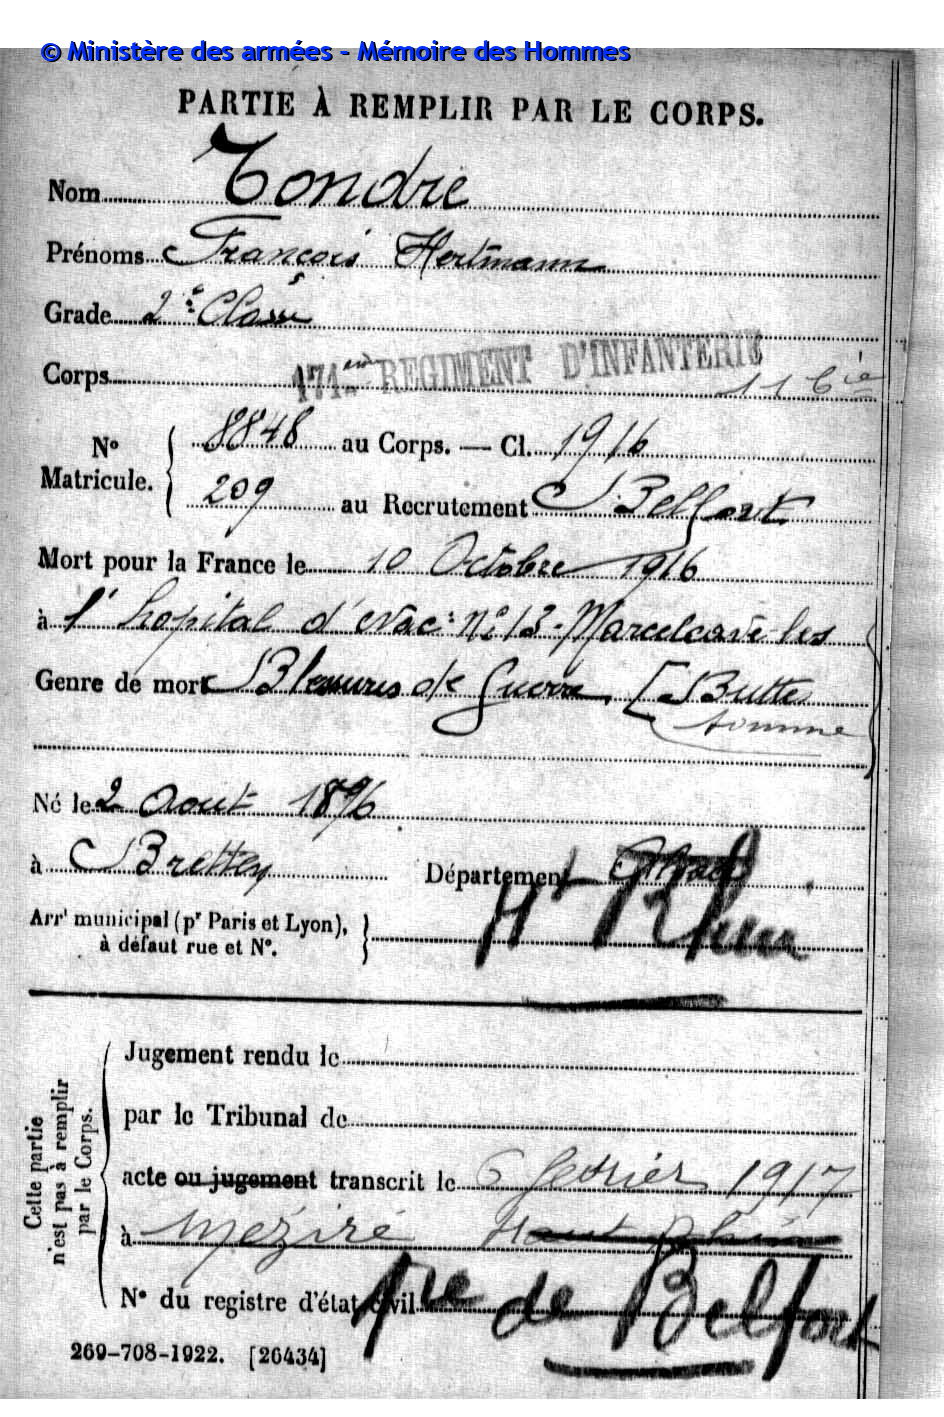 © Ministère des armées - Mémoire des Hommes
PARTIE À REMPLIR PAR LE CORPS.
Nom Tondre
Prénoms François Hertmann
Grade 2e Classe
Corps 171ème REGIMENT D'INFANTERIE 11 Cie
N° Matricule. 8848 au Corps. — Cl. 1916
209 au Recrutement Belfort
Mort pour la France le 10 Octobre 1916
à l'hopital d'evac: n° 13 - Marcelcave-les
Genre de mort Blessures de Guerre. [Buttes
somme
Né le 2 Aout 1896
à Bretten Département Alsace
Ht Rhin
Arrt municipal (pr Paris et Lyon),
à défaut rue et N°.
Cette partie n'est pas à remplir par le Corps.
Jugement rendu le
par le Tribunal de
acte ou jugement transcrit le 6 février 1917
à Méziré Haut Rhin
N° du registre d'état civil
tre de Belfort
269-708-1922. [26434]